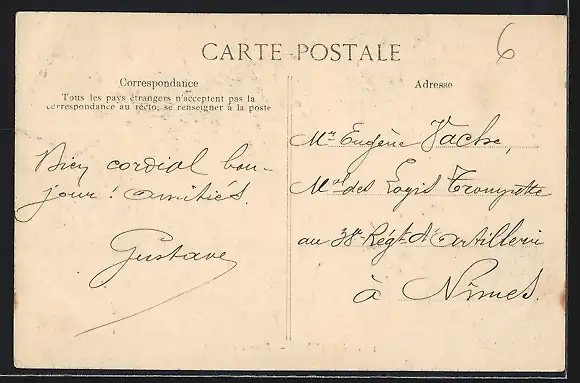 CARTE POSTALE
6
Correspondance
Tous les pays étrangers n'acceptent pas la
correspondance au recto, se renseigner à la poste
Bien cordial bon-
jour ! amitiés.
Gustave
Adresse
Mr Eugène Vache,
Mal des Logis Trompette
au 38e Régt d'artillerie
à Nîmes.